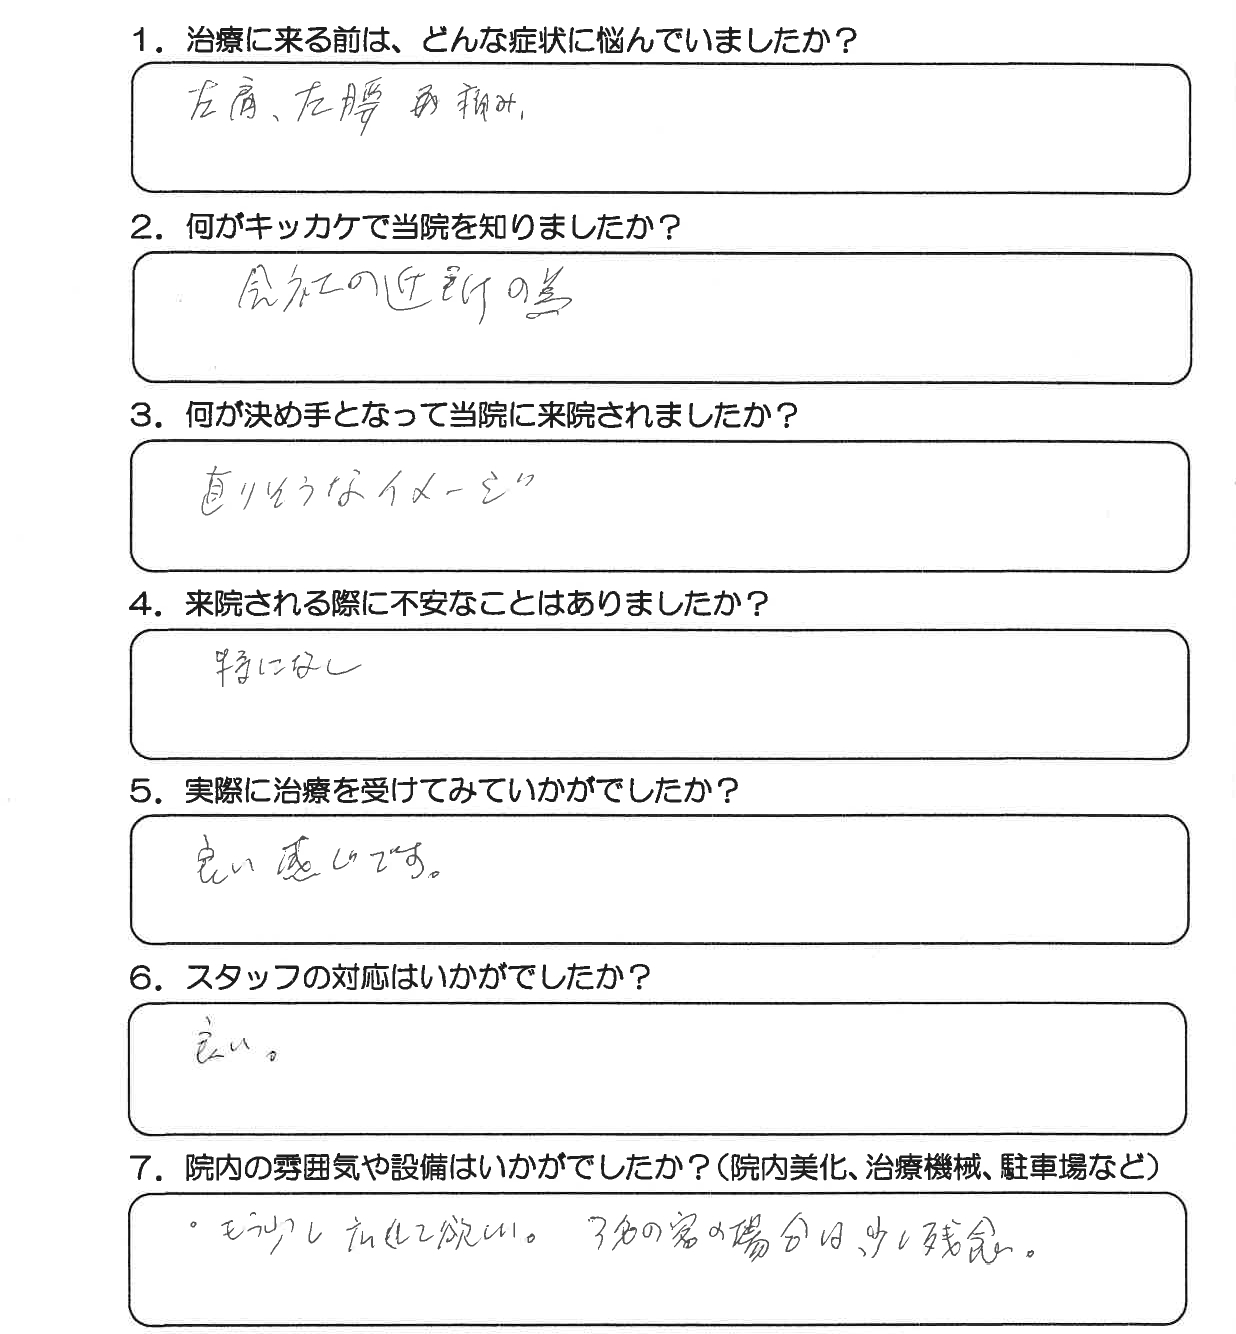 1. 治療に来る前は、どんな症状に悩んでいましたか？
左肩、左腰 痛み、
2. 何がキッカケで当院を知りましたか？
会社の近所の為
3. 何が決め手となって当院に来院されましたか？
直りそうなイメージ
4. 来院される際に不安なことはありましたか？
特になし
5. 実際に治療を受けてみていかがでしたか？
良い感じです。
6. スタッフの対応はいかがでしたか？
良い。
7. 院内の雰囲気や設備はいかがでしたか？(院内美化、治療機械、駐車場など)
・もう少し 欲しい。 3名の客の場合は、少し残念。